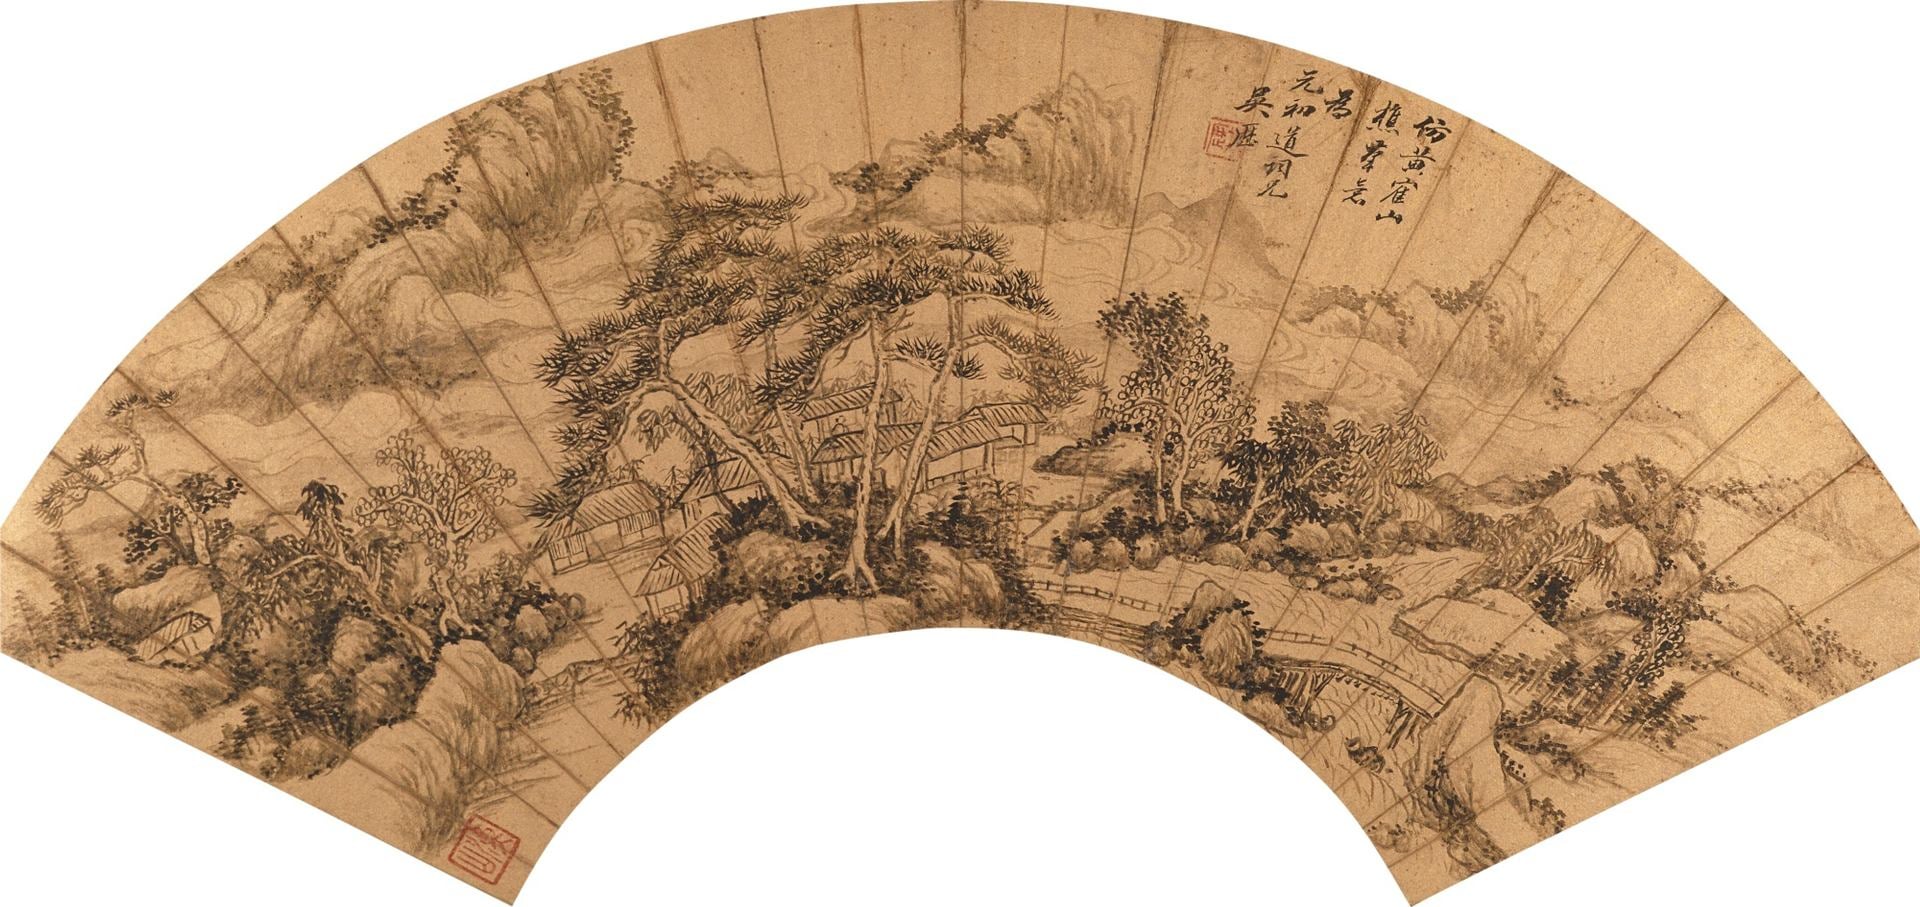 仿黄寉山
樵筆意
為
元初道詞兄
吳歷